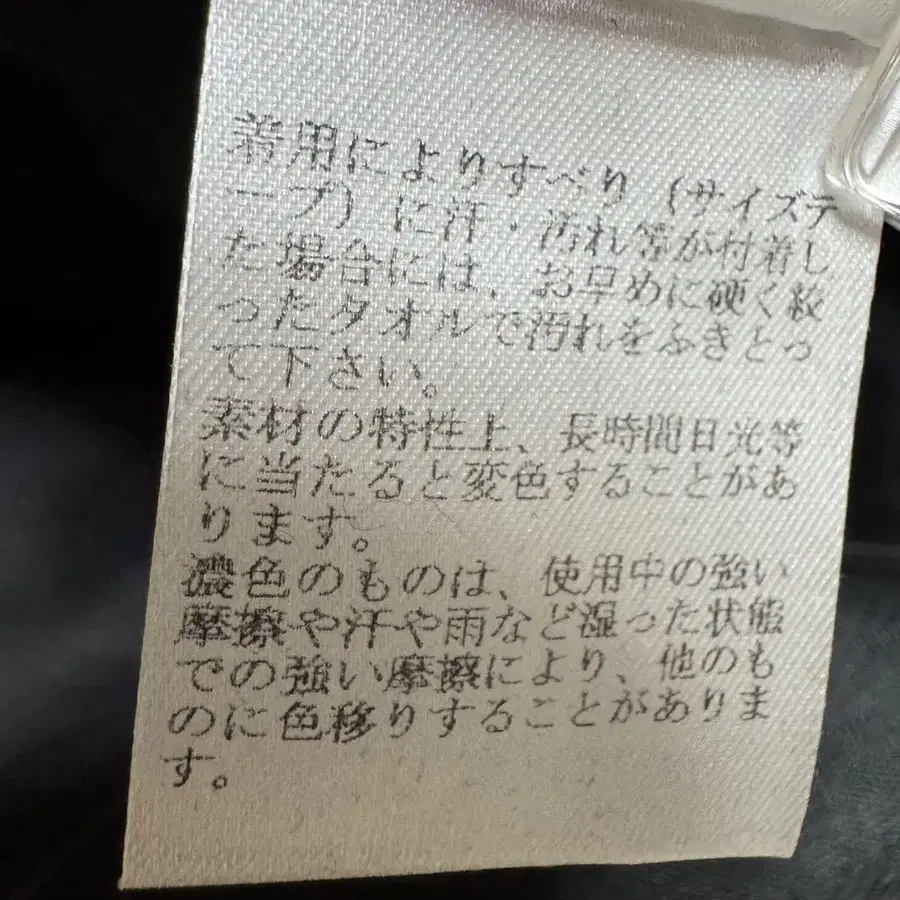 着用によりすべり（サイズテ
ープ）に汗・汚れ等が付着し
た場合には、お早めに硬く絞
ったタオルで汚れをふきとっ
て下さい。
素材の特性上、長時間日光等
に当たると変色することがあ
ります。
濃色のものは、使用中の強い
摩擦や汗や雨など湿った状態
での強い摩擦により、他のも
のに色移りすることがありま
す。